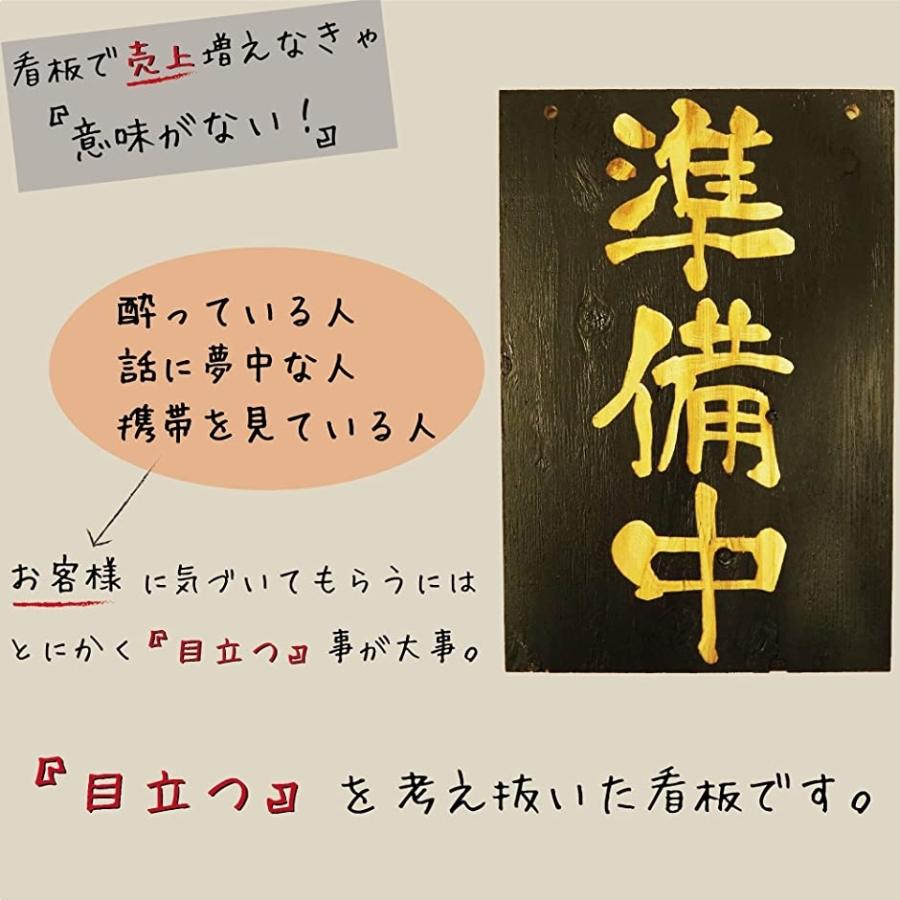 看板で売上増えなきゃ
『意味がない!』
酔っている人
話に夢中な人
携帯を見ている人
お客様に気づいてもらうには
とにかく『目立つ』事が大事。
『目立つ』を考え抜いた看板です。
準備中